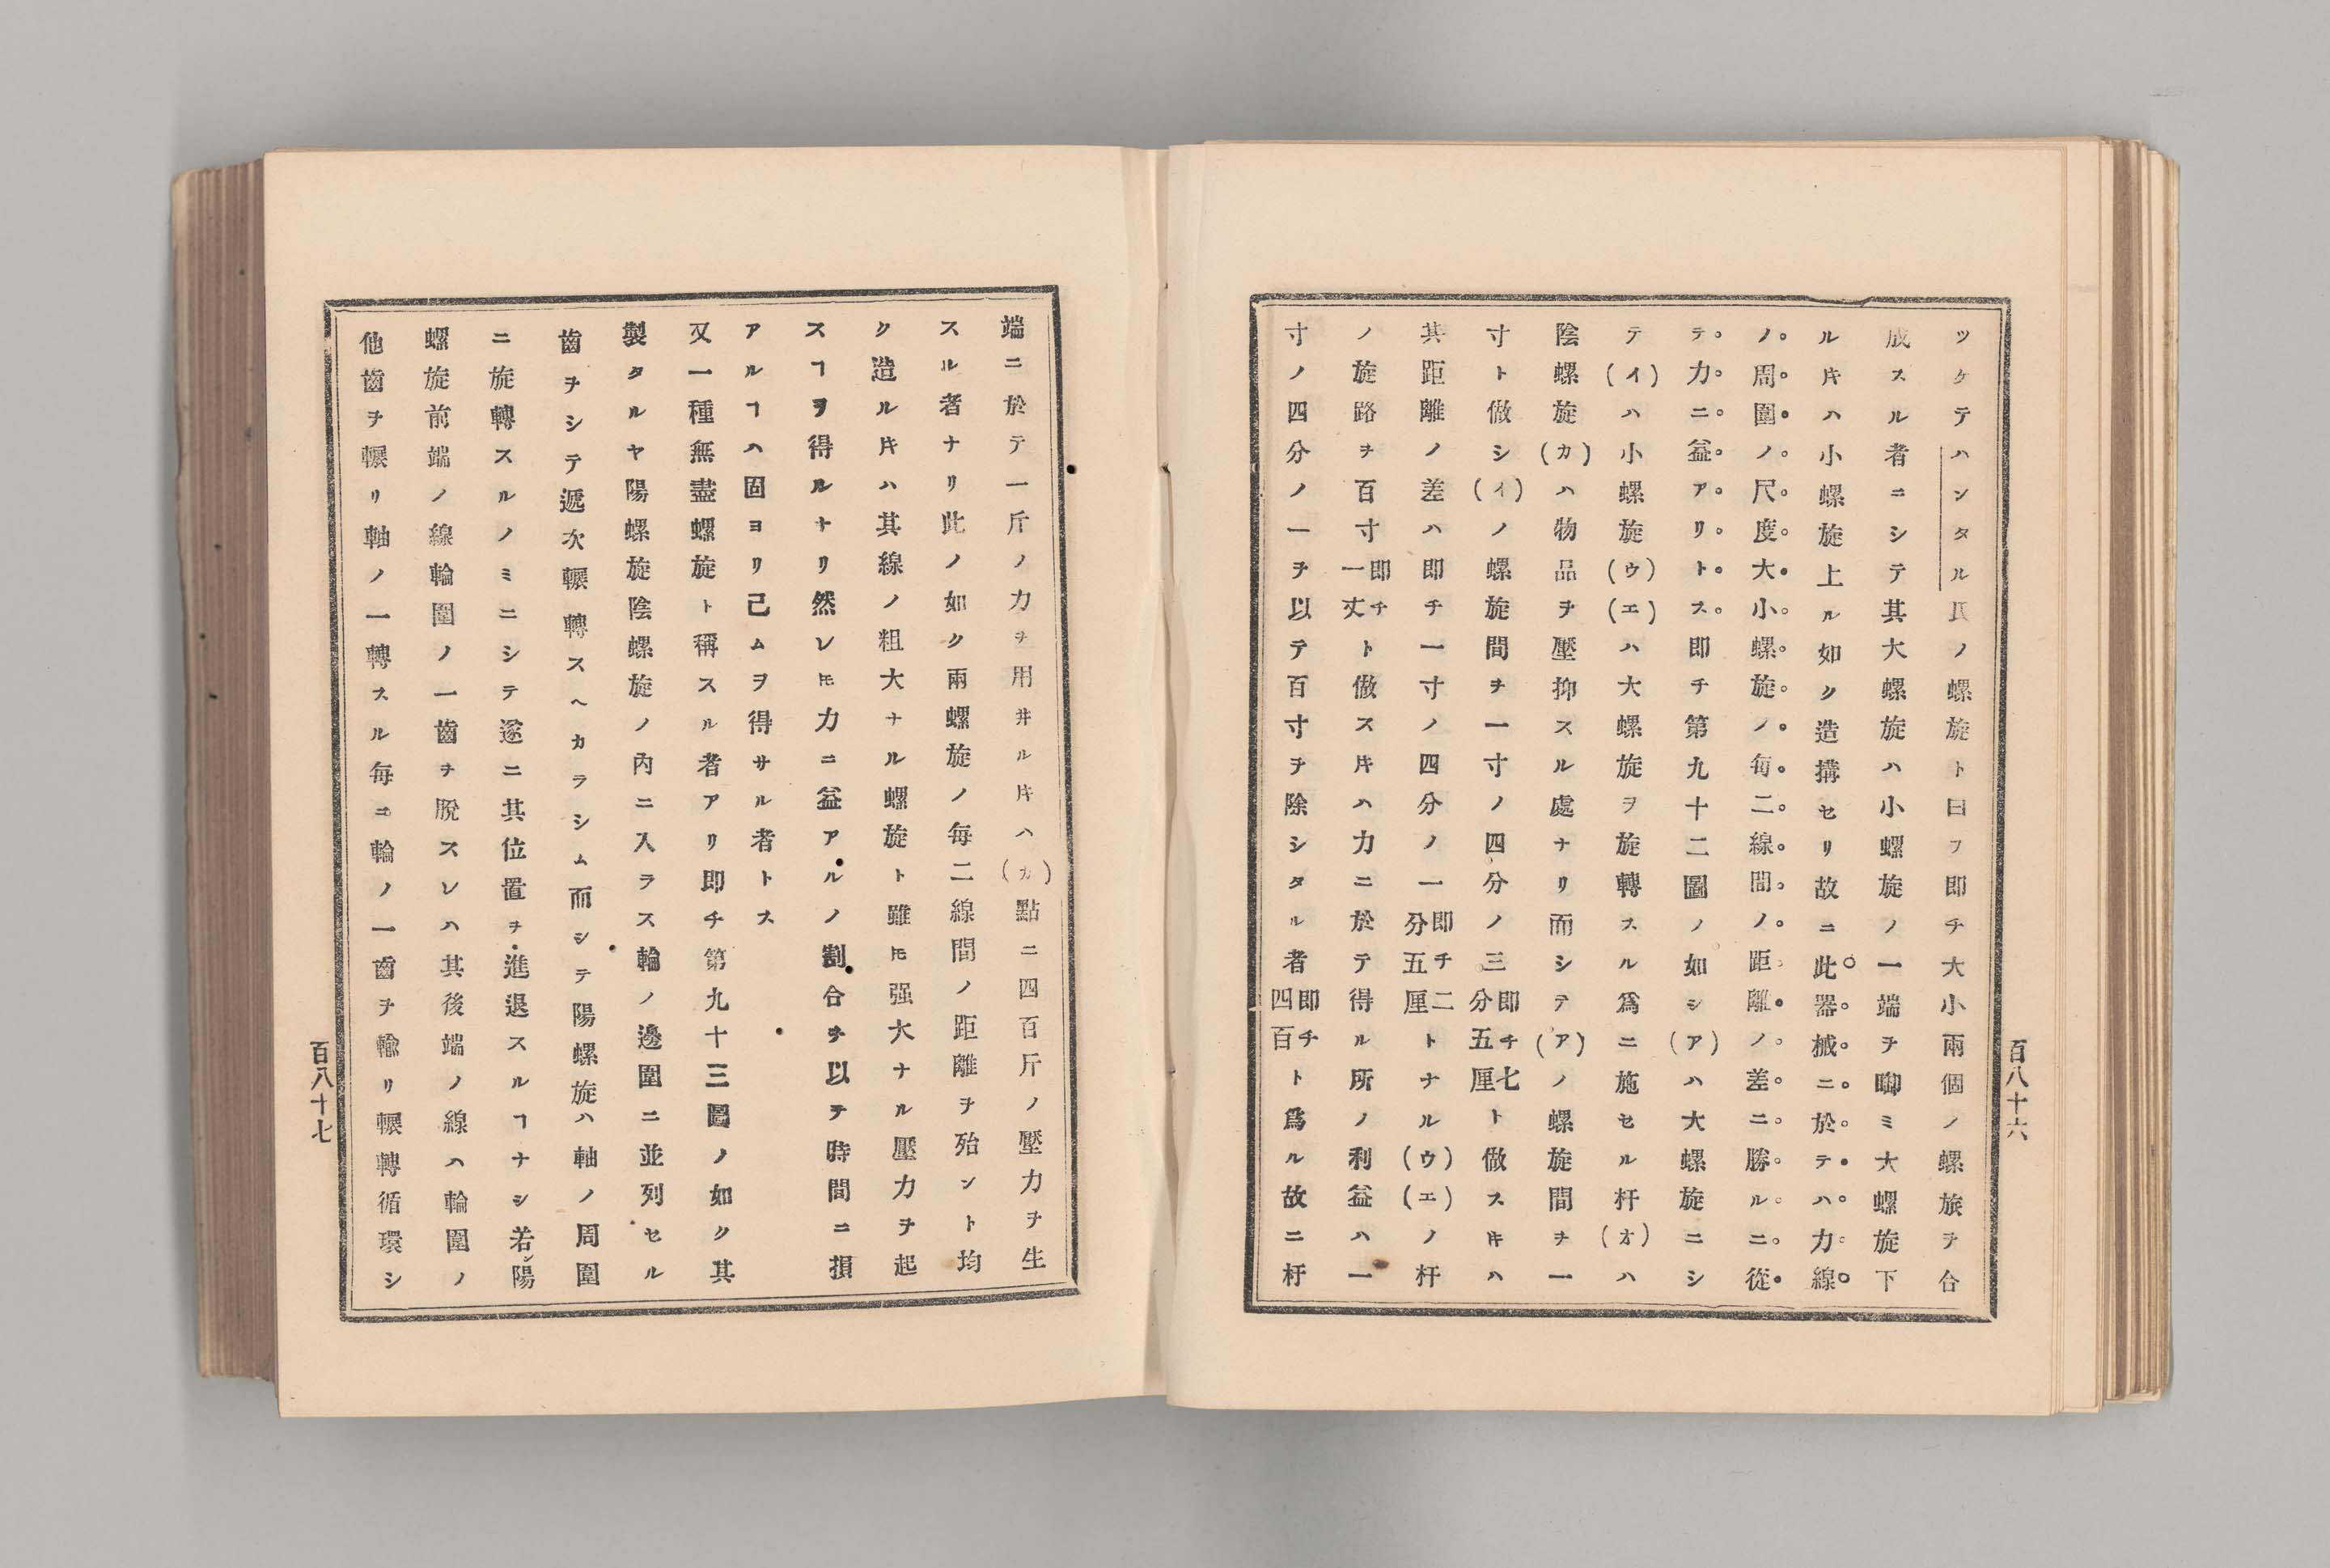 ツケテハンタル氏ノ螺旋ト曰フ即チ大小兩個ノ螺旋ヲ合
成スル者ニシテ其大螺旋ハ小螺旋ノ一端ヲ啣ミ大螺旋下
ル片ハ小螺旋上ル如ク造搆セリ故ニ此器械ニ於テハ力線
ノ周圍ノ尺度大小螺旋ノ每二線間ノ距離ノ差ニ勝ルニ從
テ力ニ益アリトス即チ第九十二圖ノ如シ(ア)ハ大螺旋ニシ
テ(イ)ハ小螺旋(ウ)(エ)ハ大螺旋ヲ旋轉スル爲ニ施セル杆(オ)ハ
陰螺旋(カ)ハ物品ヲ壓抑スル處ナリ而シテ(ア)ノ螺旋間ヲ一
寸ト倣シ(イ)ノ螺旋間ヲ一寸ノ四分ノ三即チ七分五厘ト倣スキハ
其距離ノ差ハ即チ一寸ノ四分ノ一即チ二分五厘トナル(ウ)(エ)ノ杆
ノ旋路ヲ百寸即チ一丈ト倣ス片ハ力ニ於テ得ル所ノ利益ハ一
寸ノ四分ノ一ヲ以テ百寸ヲ除シタル者即チ四百ト爲ル故ニ杆
百八十六
端ニ於テ一斤ノ力ヲ用井ル片ハ(カ)點ニ四百斤ノ壓力ヲ生
スル者ナリ此ノ如ク兩螺旋ノ每二線間ノ距離ヲ殆ント均
ク造ル片ハ其線ノ粗大ナル螺旋ト雖𪜈强大ナル壓力ヲ起
スヿヲ得ルナリ然レ𪜈力ニ益アルノ割合ヲ以テ時間ニ損
アルヿハ固ヨリ已ムヲ得サル者トス
又一種無盡螺旋ト稱スル者アリ即チ第九十三圖ノ如ク其
製タルヤ陽螺旋陰螺旋ノ內ニ入ラス輪ノ邊圍ニ並列セル
齒ヲシテ遞次輾轉スヘカラシム而シテ陽螺旋ハ軸ノ周圍
ニ旋轉スルノミニシテ遂ニ其位置ヲ進退スルヿナシ若シ陽
螺旋前端ノ線輪圍ノ一齒ヲ脫スレハ其後端ノ線ハ輪圍ノ
他齒ヲ輾リ軸ノ一轉スル每ニ輪ノ一齒ヲ輸リ輾轉循環シ
百八十七